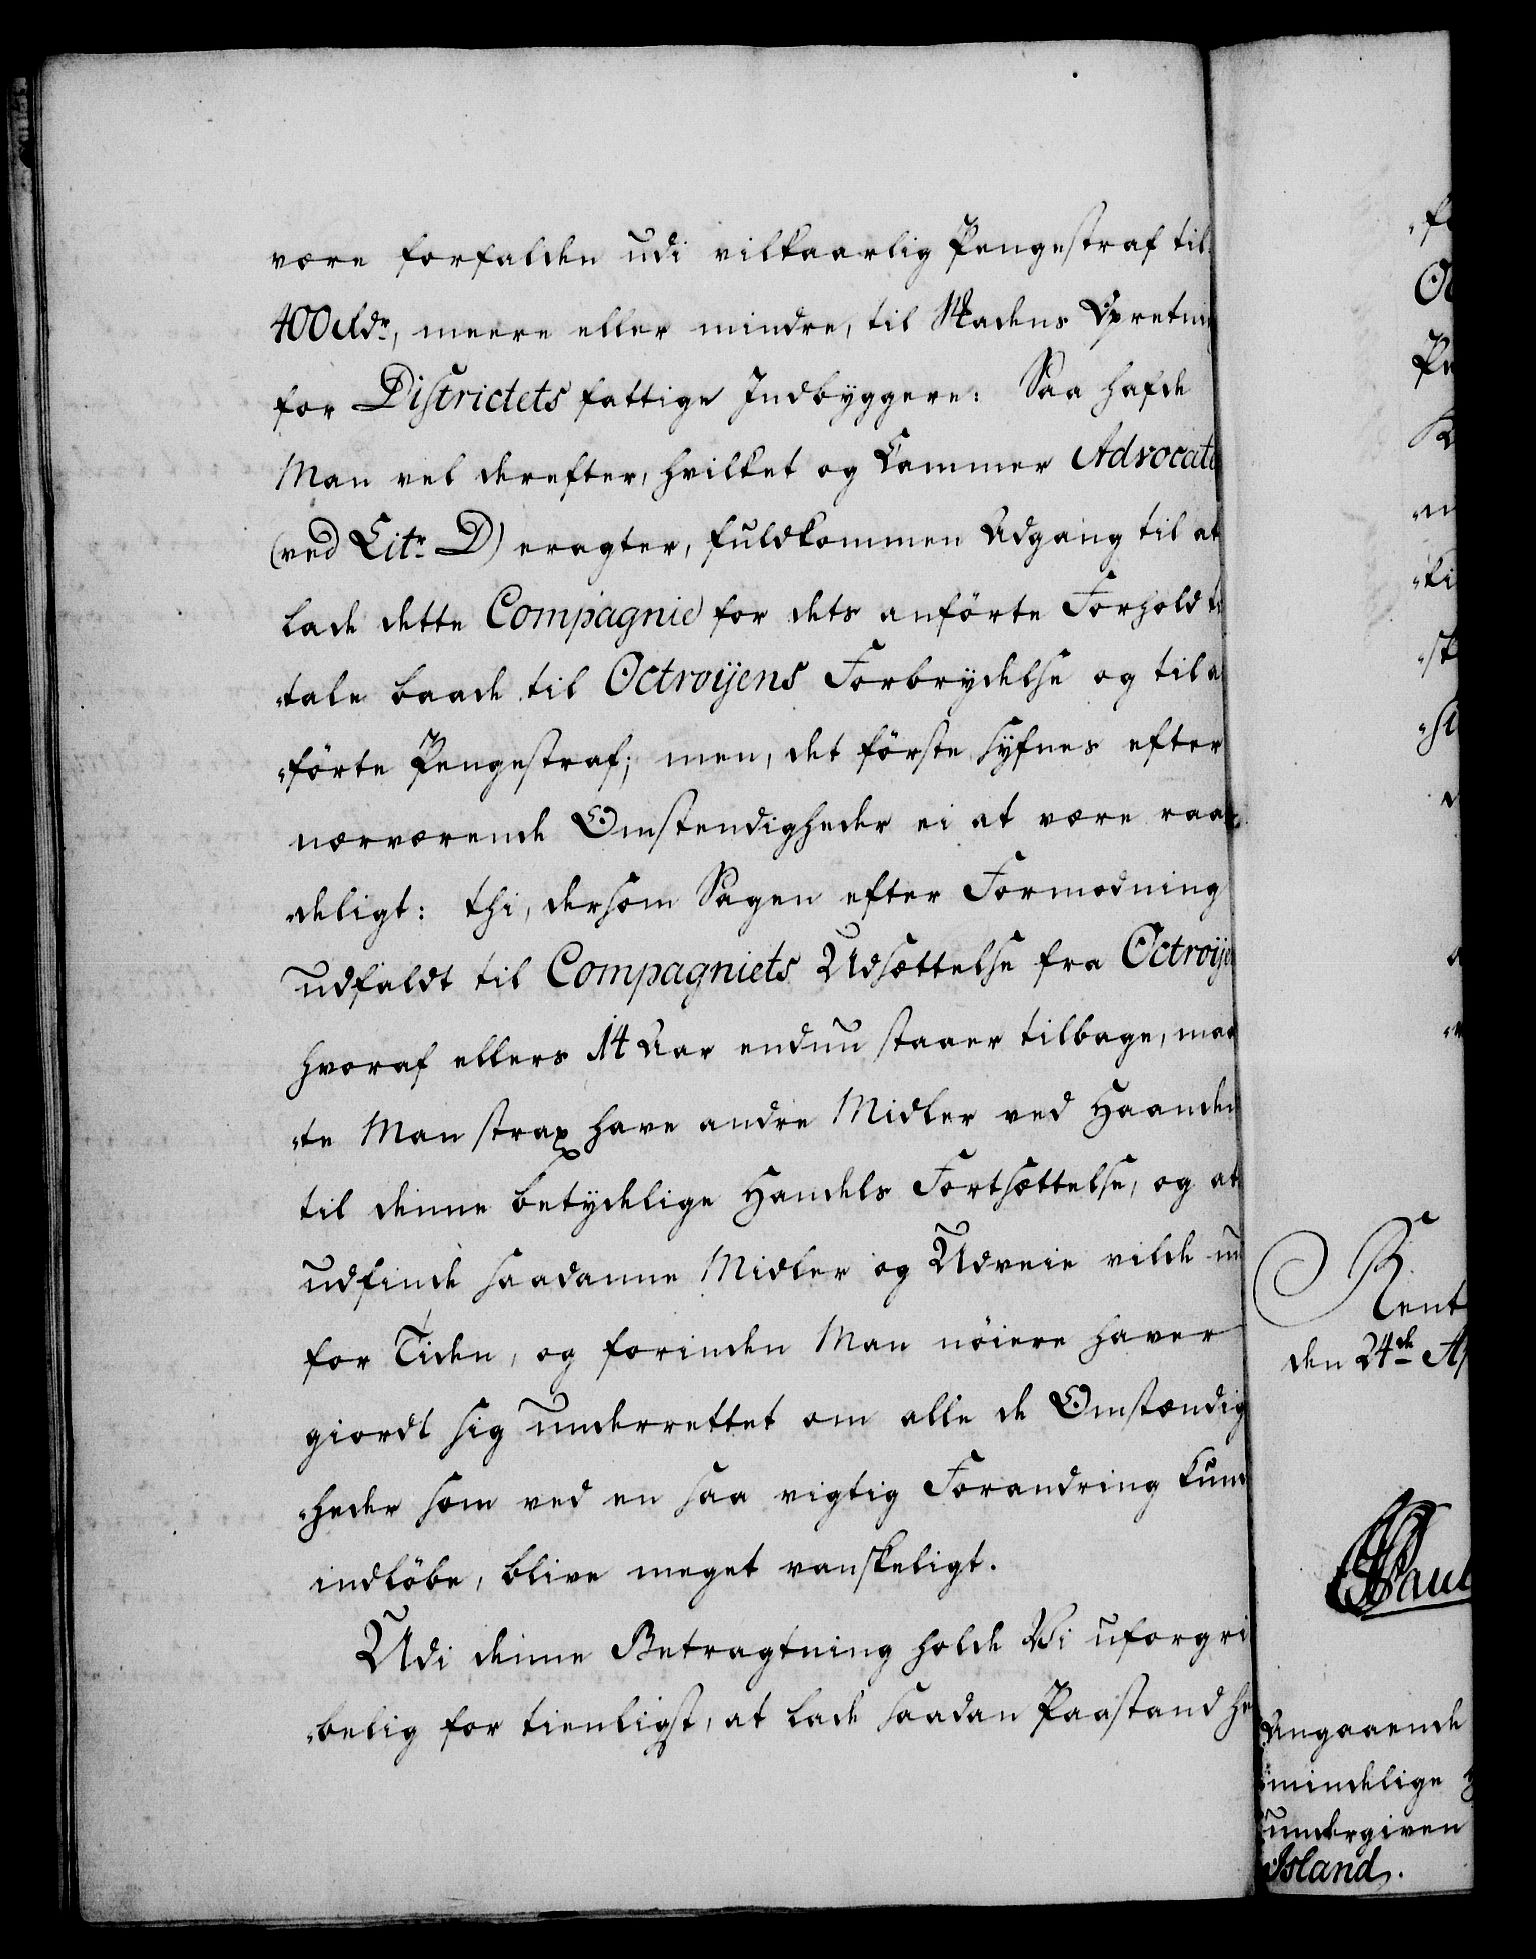 være forfalden udi vilkaarlig Pengestraf til
400 Rdr, meere eller mindre, til Skadens Opretni
for Districtets fattige Indbyggere: Saa hafde
Man vel derefter, hvilket og Cammer Advocate
(ved Litr D) eragter, fuldkommen Adgang til at
lade dette Compagnie for dets anförte Forhold ti
"tale baade til Octroijens Forbrydelse og til a
"förte Pengestraf; men, det förste syfnes efter
nærværende Omstendigheder ei at være raa
"deligt: thi, dersom Sagen efter Formodning
udfaldt til Compagniets Udsættelse fra Octroije
hvoraf ellers 14 Aar endnu staaer tilbage, maa
"te Man strax have andre Midler ved Haanden
til denne betydelige Handels Fortsættelse, og at
udfinde saadanne Midler og Udveie vilde nu
for Tiden, og forinden Man nöiere haver
giordt sig underrettet om alle de Omstændig
"heder som ved en saa vigtig Forandring kund
indlöbe, blive meget vanskeligt.
Udi denne Betragtning holde Vi uforgri
"belig for tienligst, at lade saadan Paastand he
Rent
den 24de Ap
Angaaende
mindelige
undergiven
Island.